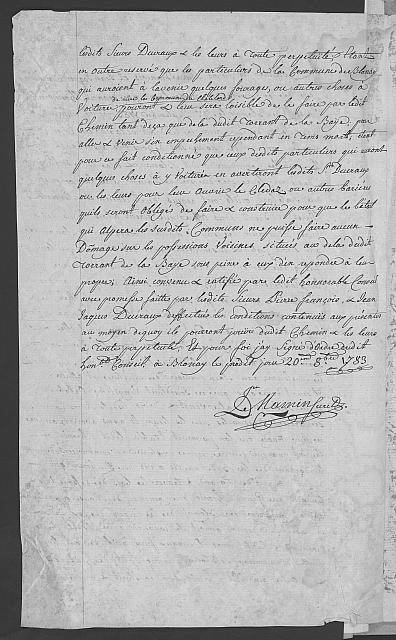 lesdits Sieurs Duvaux & les leurs à Toute perpetuité, Etant
en outre reservé que les particuliers de la Commune de Blonay
qui auroient à lavenir quelques fourages, ou autres choses à
voiturer pourront & leur sera loisible de le faire par ledit
Chemin tant deça que dela dudit torrant de la Baye, par
aller & venir seulement cependant en tems mort, étant
pour ce fait conditionné que ceux desdits particuliers qui auront
quelques choses à y Voiturer en avertiront lesdits Srs Duvaux
ou les leurs pour leur Ouvrir le Cledar, ou autres bariere
quils seront Obligés de faire & construire pour que le betail
qui Alpera les susdits Communs ne puisse faire aucun
Domage sur les possessions Voisines situées au dela dudit
torrant de la Baye sous peine à eux d'en repondre à leur
propre; Ainsi convenu & ratifié par ledit honorable Conseil
avec promesse faittes par lesdits Sieurs Pierre François, & Jean
Jaques Duvaux d'effectuer les conditions contenues aux presentes
au moyen dequoy ils pourront jouir dudit Chemin & les leurs
à Toute perpetuité, Et pour foi jay Signé d'ordre dudit
honble Conseil, à Blonay le predit jour 20me 8bre 1783
Mamin